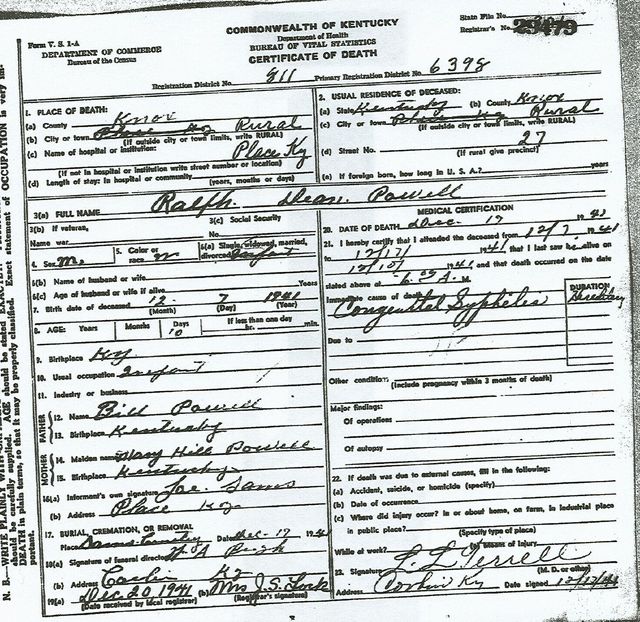 Form V. S. 1-A
DEPARTMENT OF COMMERCE
Bureau of the Census
COMMONWEALTH OF KENTUCKY
Department of Health
BUREAU OF VITAL STATISTICS
CERTIFICATE OF DEATH
State File No.
Registrar's No. 29479
Registration District No. 811 Primary Registration District No. 6398
1. PLACE OF DEATH:
(a) County Knox
(b) City or town Place Ky Rural
(If outside city or town limits, write RURAL)
(c) Name of hospital or institution: Place Ky
(If not in hospital or institution write street number or location)
(d) Length of stay: In hospital or community (years, months or days)
2. USUAL RESIDENCE OF DECEASED:
(a) State Kentucky (b) County Knox
(c) City or town Place Ky Rural
(If outside city or town limits, write RURAL)
(d) Street No. 27
(If rural give precinct)
(e) If foreign born, how long in U. S. A.? years
3(a) FULL NAME Ralph Dean Powell
3(b) If veteran, 3(c) Social Security
Name war No.
4. Sex M. 5. Color or race 6(a) Single, widowed, married, divorced Infant
6(b) Name of husband or wife
6(c) Age of husband or wife if alive Years
7. Birth date of deceased 12 7 1941
(Month) (Day) (Year)
8. AGE: Years Months Days If less than one day
10 hr. min.
9. Birthplace Ky
10. Usual occupation Infant
11. Industry or business
FATHER
12. Name Bill Powell
13. Birthplace Kentucky
MOTHER
14. Maiden name Mary Hill Powell
15. Birthplace Kentucky
16(a) Informant's own signature Joe Sams
(b) Address Place Ky
17. BURIAL, CREMATION, OR REMOVAL
Place Cemetery Date Dec-17 1941
18(a) Signature of funeral director
(b) Address Corbin Ky
19(a) Dec 20 1941 (b) Mrs J. S. Lock
(Date received by local registrar) (Registrar's signature)
MEDICAL CERTIFICATION
20. DATE OF DEATH Dec. 17 1941
21. I hereby certify that I attended the deceased from 12/7 1941
to 12/17 1941 that I last saw him alive on
12/10 1941 and that death occurred on the date
stated above at A. M.
Immediate cause of death DURATION
Congenital Syphilis Hereditary
Due to
Other condition: (Include pregnancy within 3 months of death)
Major findings:
Of operations
Of autopsy
22. If death was due to external causes, fill in the following:
(a) Accident, suicide, or homicide (specify)
(b) Date of occurrence
(c) Where did injury occur? in or about home, on farm, in industrial place
in public place? (Specify type of place)
While at work? Means of injury
23. Signature L. L. Terrell
(M. D. or other)
Address Corbin Ky Date signed 12/17/41
N. B.—WRITE PLAINLY WITH
should be carefully supplied. AGE should be stated EXACTLY. Exact statement of OCCUPATION is very im-
DEATH in plain terms, so that it may be properly classified.
portant.